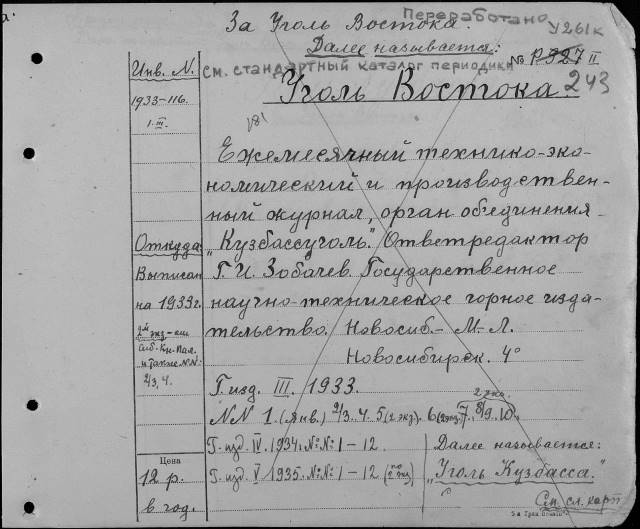 За Уголь Востока. Переработано
У261к
Далее называется:
См. стандартный каталог периодики № Р 327 II
Уголь Востока. 243
181
Инв. N.
1933-116.
1.III.
Ежемесячный технико-эко-
номический и производствен-
ный журнал, орган об'единения
„Кузбассуголь". Ответредактор
Г. И. Зобачев. Государственное
научно-техническое горное изда-
тельство. Новосиб.- М.-Л.
Новосибирск. 4°
Откуда
Выписан
на 1933г.
2й экз-
и также N.N:
2/3, 4.
Г. изд. III. 1933.
2 экз.
NN 1. (янв.) 2/3. 4. 5 (2 экз). 6 (2 экз). 7. 8/9. 10.
Г. изд. IV. 1934. №№ 1-12.
Г. изд. V 1935. №№ 1-12 (по 2 экз)
Далее называется:
„Уголь Кузбасса."
См. сл. карт
Цена
12 р.
в год.